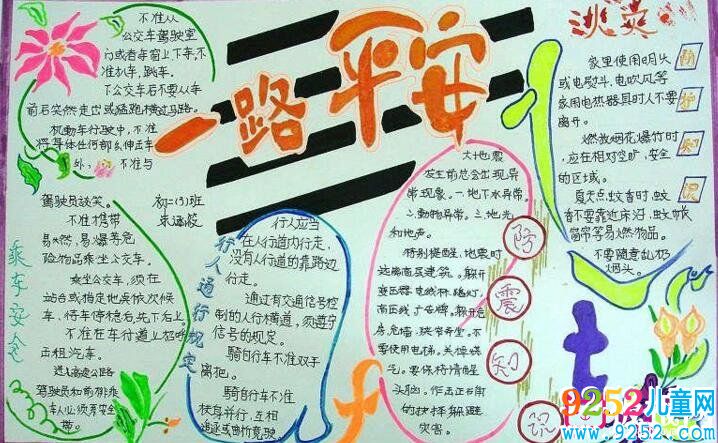 一路平安
不准从
公交车驾驶室
门或者车窗上下车,不
准扒车,跳车。
下公交车后不要从车
前后突然走出或猛跑横过马路。
机动车行驶中,不准
将身体任何部分伸出车
外, 不准与
驾驶员谈笑。
初二(3)班
不准携带
易燃,易爆等危
险物品乘坐公交车。
乘坐公交车,须在
站台或指定地点依次候
车,待车停稳后,先下后上。
不准在车行道上招呼
出租汽车。
进入高速公路
驾驶员和前排乘
车人必须系安全
带。
乘车安全
行人通行规定
行人应当
在人行道内行走,
没有人行道的靠路边
行走。
通过有交通信号控
制的人行横道,须遵守
信号的规定。
骑自行车不准双手
离把。
骑自行车不准
扶身并行,互相
追逐或曲折竞驶
大地震
发生前总会出现异
常现象。一.地下水异常。
二.动物异常。三.地光
和地声。
特别提醒,地震时
远离高层建筑。躲开
变压器,电线杆,路灯,
高压线,广告牌。躲开危
房,危墙,狭窄弄堂。不
要使用电梯。关掉煤
气。要保持清醒
头脑。
灾害。
防
震
知
识
防
护
知
识
家里使用明火
或电熨斗,电吹风等
家用电热器具时人不要
离开。
燃放烟花爆竹时,
应在相对空旷,安全
的区域。
夏天点蚊香时,蚊
香不要靠近床沿,蚊帐
窗帘等易燃物品。
不要随意乱扔
烟头。
9252儿童网
www.9252.com